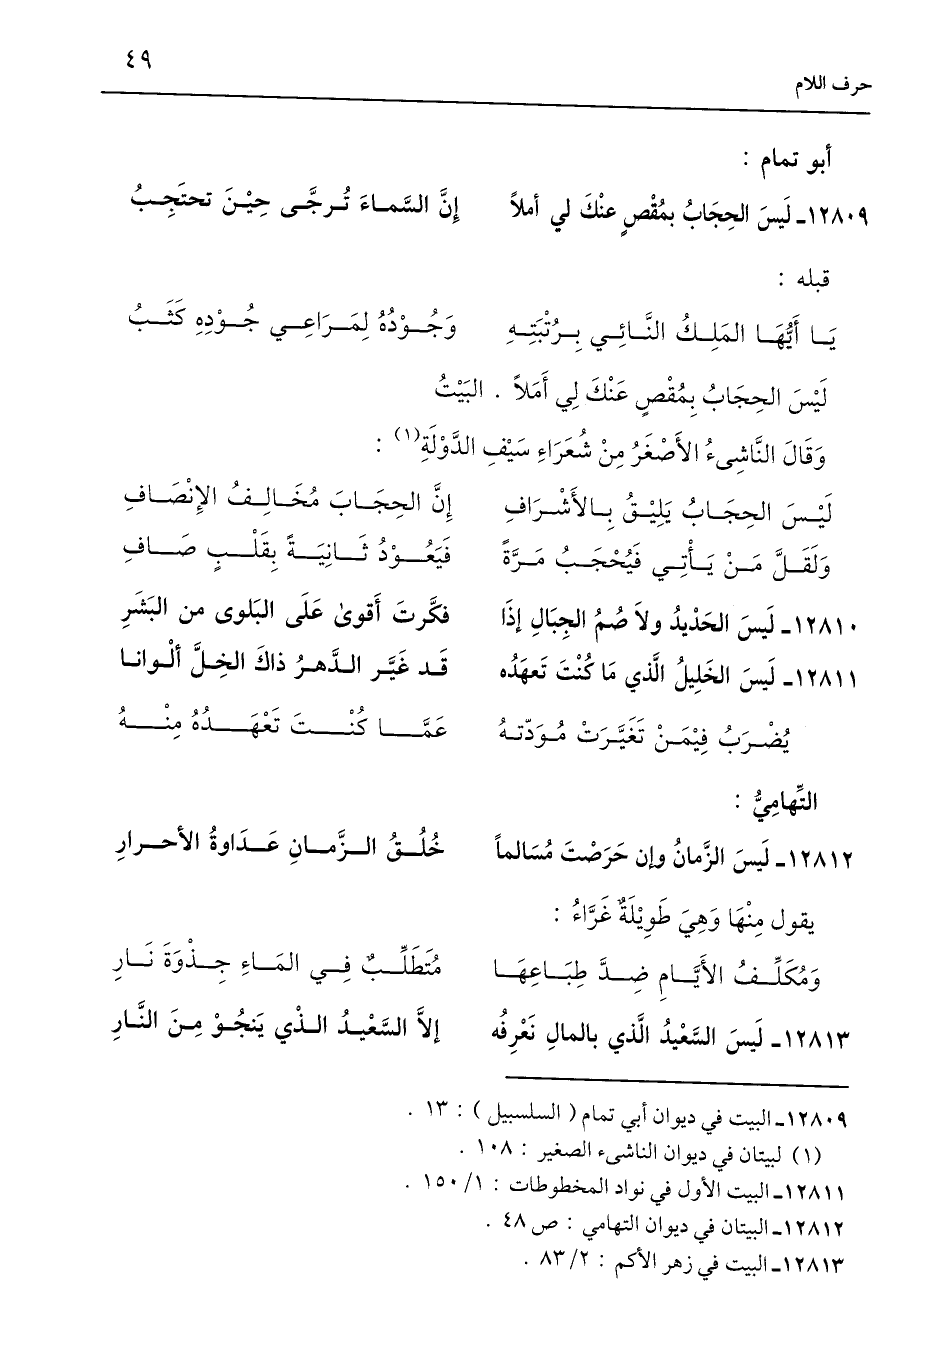 ٤٩
حرف اللام
أبو تمام :
١٢٨٠٩ـ لَيسَ الحِجَابُ بمُقْصٍ عنْكَ لي أملاً إنَّ السَّماءَ تُرجَّى حِيْنَ تحتَجِبُ
قبله :
يَا أَيُّهَا المَلِكُ النَّائِي بِرُتْبَتِهِ وَجُوْدُهُ لِمَرَاعِي جُوْدِهِ كَثَبُ
لَيْسَ الحِجَابُ بِمُقْصٍ عَنْكَ لِي أَمَلاً . البَيْتُ
وَقَالَ النَّاشِىءُ الأَصْغَرُ مِنْ شُعَرَاءِ سَيْفِ الدَّوْلَةِ(١) :
لَيْسَ الحِجَابُ يَلِيْقُ بِالأَشْرَافِ إِنَّ الحِجَابَ مُخَالِفُ الإِنْصَافِ
وَلَقَلَّ مَنْ يَأْتِي فَيُحْجَبُ مَرَّةً فَيَعُوْدُ ثَانِيَةً بِقَلْبٍ صَافِ
١٢٨١٠ـ لَيسَ الحَدْيدُ ولاَ صُمُ الجِبَالِ إذَا فكَّرتَ أقوىٰ عَلَى البَلوى من البَشَرِ
١٢٨١١ـ لَيسَ الخَليلُ الَّذي مَا كُنْتَ تَعهَدُه قَد غَيَّر الدَّهرُ ذاكَ الخِلَّ ألْوانا
يُضْرَبُ فِيْمَنْ تَغَيَّرَتْ مُوَدّتهُ عَمَّا كُنْتَ تَعْهَدُهُ مِنْهُ
التِّهامِيُّ :
١٢٨١٢ـ لَيسَ الزَّمانُ وإن حَرَصْتَ مُسَالماً خُلُقُ الزَّمانِ عَداوةُ الأحرارِ
يقول مِنْهَا وَهِيَ طَوِيْلَةٌ غَرَّاءُ :
وَمُكَلِّفُ الأيَّامِ ضِدَّ طِبَاعِهَا مُتَطَلِّبٌ فِي المَاءِ جِذْوَةَ نَارِ
١٢٨١٣ـ لَيسَ السَّعْيدُ الَّذي بالمالِ نَعْرِفُه إلاَّ السَّعْيدُ الذْي يَنجُوْ مِنَ النَّارِ
١٢٨٠٩ـ البيت في ديوان أبي تمام ( السلسبيل ) : ١٣ .
(١) لبيتان في ديوان الناشىء الصغير : ١٠٨ .
١٢٨١١ـ البيت الأول في نواد المخطوطات : ١/ ١٥٠ .
١٢٨١٢ـ البيتان في ديوان التهامي : ص ٤٨ .
١٢٨١٣ـ البيت في زهر الأكم : ٢/ ٨٣ .